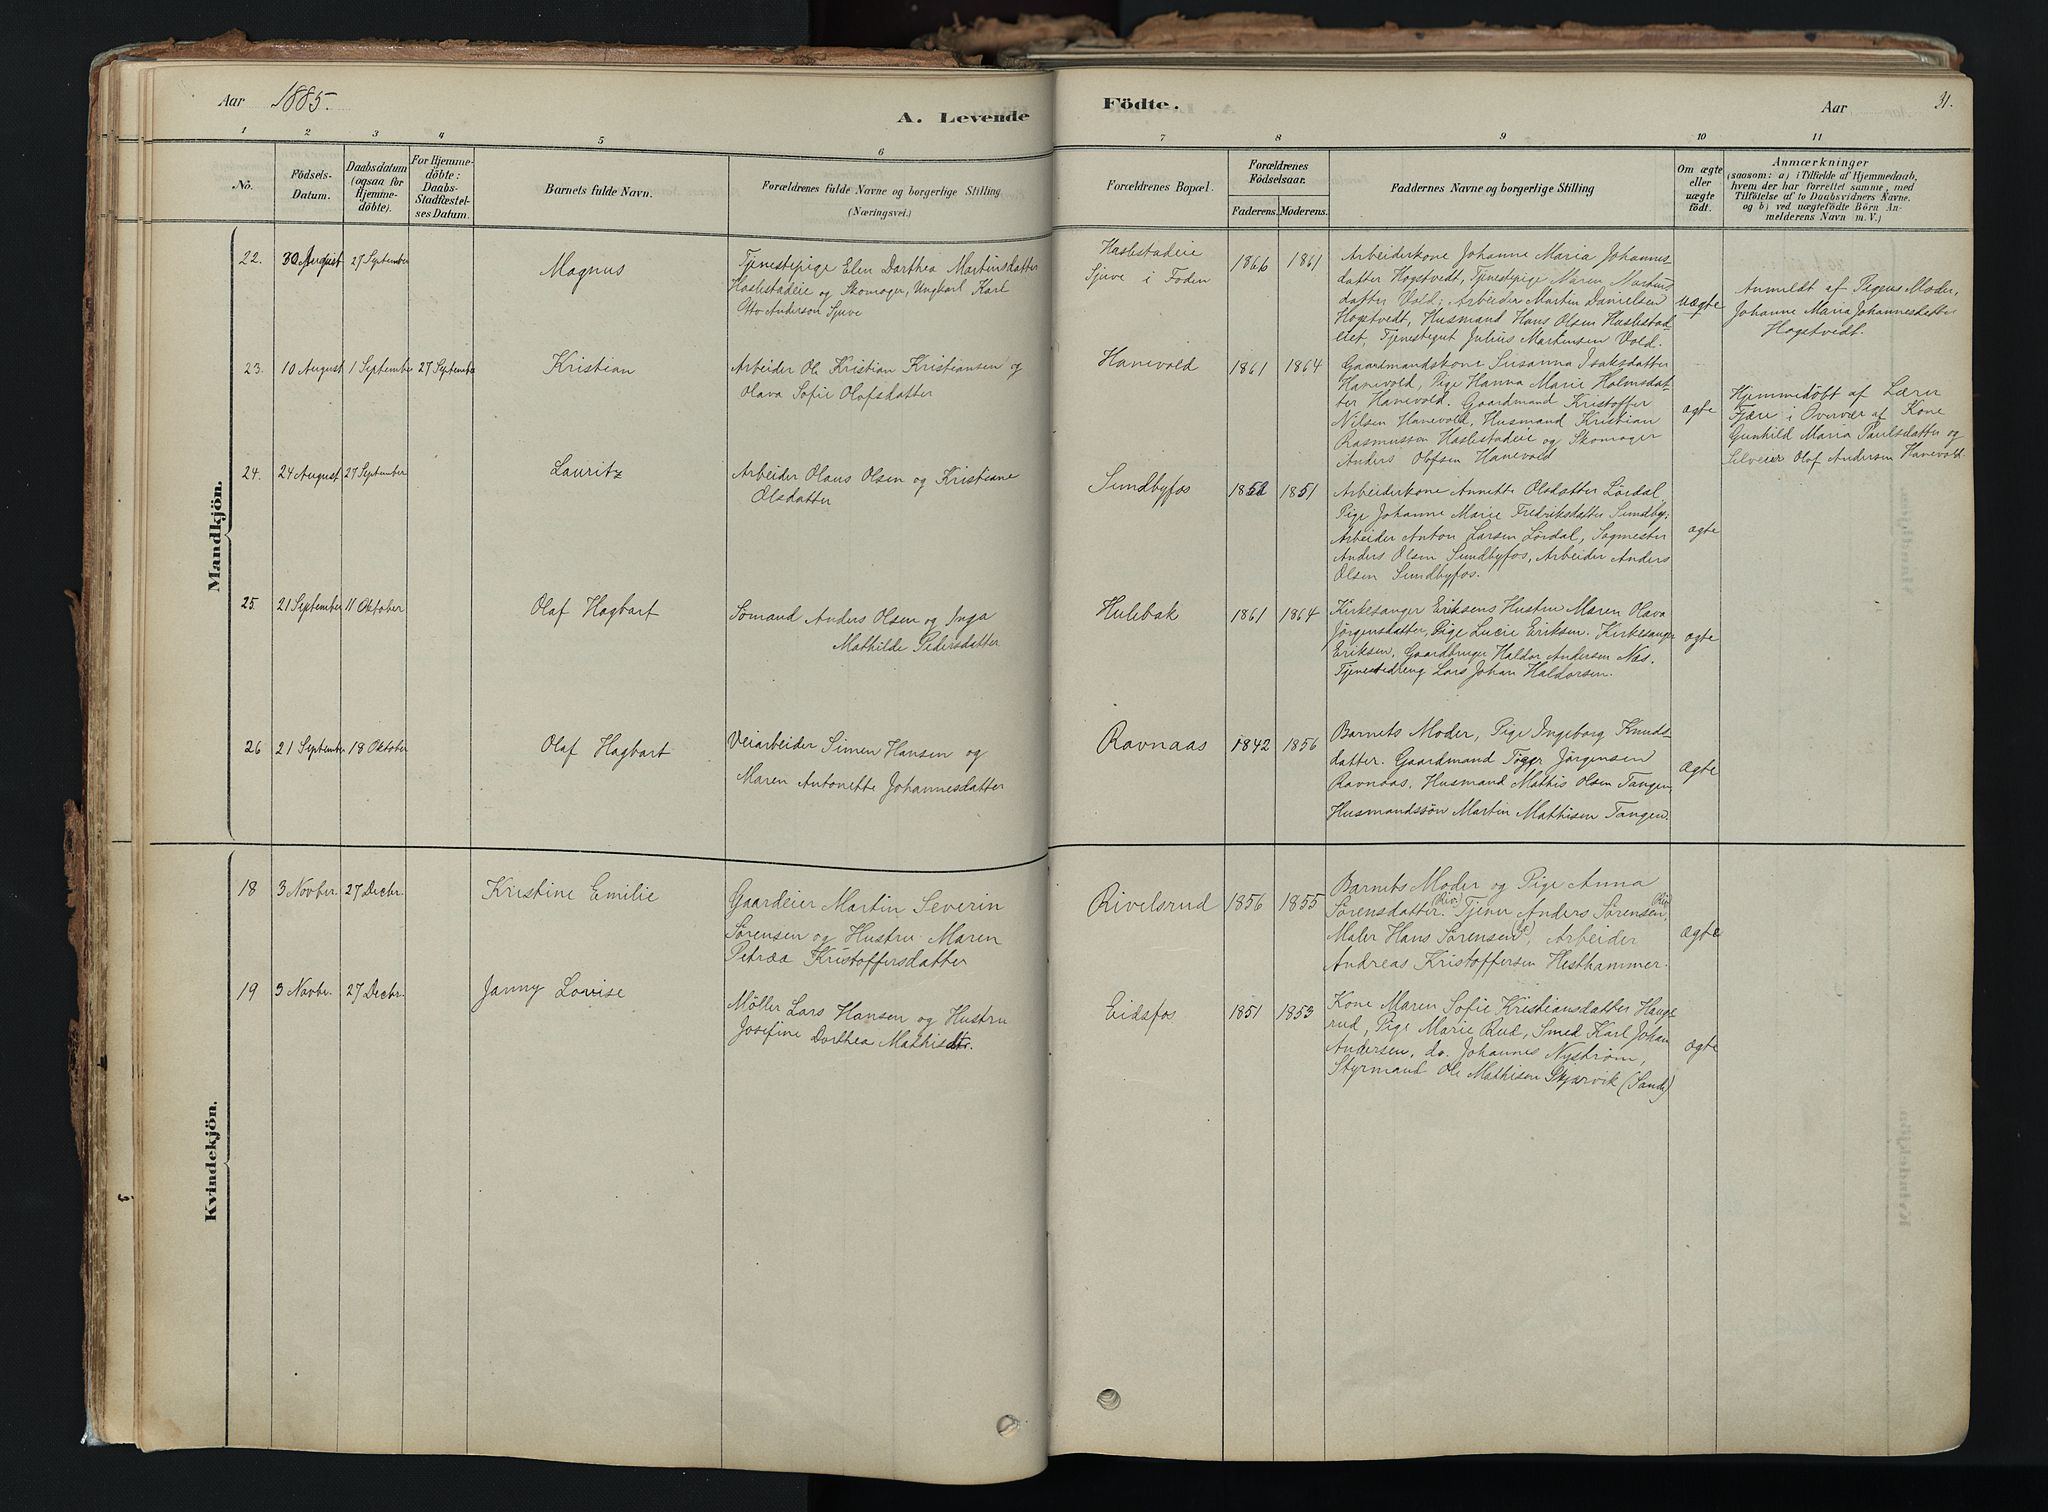 Aar 1885.
A. Levende
Födte.
Aar
31.
1 2 3 4 5 6 7 8 9 10 11
No.
Födsels-
Datum.
Daabsdatum
(ogsaa for
Hjemme-
döbte).
For Hjemme-
döbte:
Daabs-
Stadfæstel-
ses Datum.
Barnets fulde Navn.
Forældrenes fulde Navne og borgerlige Stilling.
(Næringsvei.)
Forældrenes Bopæl.
Forældrenes
Födselsaar.
Faderens. Moderens.
Faddernes Navne og borgerlige Stilling
Om ægte
eller
uægte
födt.
Anmærkninger
(saasom: a) i Tilfælde af Hjemmedaab,
hvem der har forrettet samme, med
Tilföielse af to Daabsvidners Navne.
og b) ved uægtefödte Börn An-
melderens Navn m. V.)
Mandkjön.
22. 30 August 27 September
Magnus
Tjenestepige Elen Dorthea Martinsdatter
Haslestadeie og Skomager, Ungkarl Karl
Otto Anderson Sjuve
Haslestadeie
Sjuve i Foden
1866 1861
Arbeiderkone Johanne Maria Johannes-
datter Hogstvedt, Tjenestepige Maren Martins-
datter Vold, Arbeider Martin Danielsen
Hogstvedt, Husmand Hans Olsen Haslestad-
eiet, Tjenestegut Julius Martinsen Vold.
uægte
Anmeldt af Pigens Moder,
Johanne Maria Johannesdatter
Hogstvedt.
23. 10 August 1 September 27 September
Kristian
Arbeider Ole Kristian Kristiansen og
Olava Sofie Olofsdatter
Hanevold
1861 1864
Gaardmandskone Susanna Isaksdatter
Hanevold, Pige Hanna Marie Holmsdat-
ter Hanevold. Gaardmand Kristoffer
Nilsen Hanevold, Husmand Kristian
Rasmussen Haslestadeie og Skomager
Anders Olofsen Hanevold
ægte
Hjemmedöbt af Lærer
Fjære i Overvær af Kone
Gunhild Maria Paulsdatter og
Selveier Olof Andersen Hanevold.
24. 24 August 27 September
Lauritz
Arbeider Olaus Olsen og Kristiane
Olsdatter
Sundbyfos
1852 1851
Arbeiderkone Annette Olsdatter Lördal,
Pige Johanne Marie Fredriksdatter Sundby,
Arbeider Anton Larsen Lördal, Sagmester
Anders Olsen Sundbyfos, Arbeider Anders
Olsen Sundbyfos.
ægte
25. 21 September 11 Oktober
Olaf Hagbart
Sömand Anders Olsen og Inga
Mathilde Pedersdatter
Hulebak
1861 1864
Kirkesanger Eriksens Hustru Maren Olava
Jörgensdatter, Pige Lucie Eriksen. Kirkesanger
Eriksen, Gaardbruger Haldor Andersen Næs.
Tjenestedreng Lars Johan Haldorsen.
ægte
26 21 September 18 Oktober
Olaf Hagbart
Veiarbeider Simen Hansen og
Maren Antonette Johannesdatter
Ravnaas
1842 1856
Barnets Moder, Pige Ingeborg Knuds-
datter. Gaardmand Jörgensen
Ravnaas, Husmand Mathis Olsen Tangen,
Husmandssön Martin Mathisen Tangen.
ægte
Kvindekjön.
18 3 Novber. 27 Decbr.
Kristine Emilie
Gaardeier Martin Severin
Sörensen og Hustru Maren
Petræa Kristoffersdatter
Rivelsrud
1856 1855
Barnets Moder og Pige Anna
Sörensdatter (Riv.) Tjener Anders Sörensen (Riv.)
Maler Hans Sörensen, Arbeider
Andreas Kristoffersen Hesthammer.
ægte
19 3 Novbr. 27 Decbr.
Janny Lovise
Møller Lars Hansen og Hustru
Josefine Dorthea Mathisdtr.
Eidsfos
1851 1853
Kone Maren Sofie Kristiansdatter Hauge-
rud, Pige Marie Rud, Smed Karl Johan
Andersen, do. Johannes Nyström,
Styrmand Ole Mathisen Skjærvik (Sande)
ægte
3